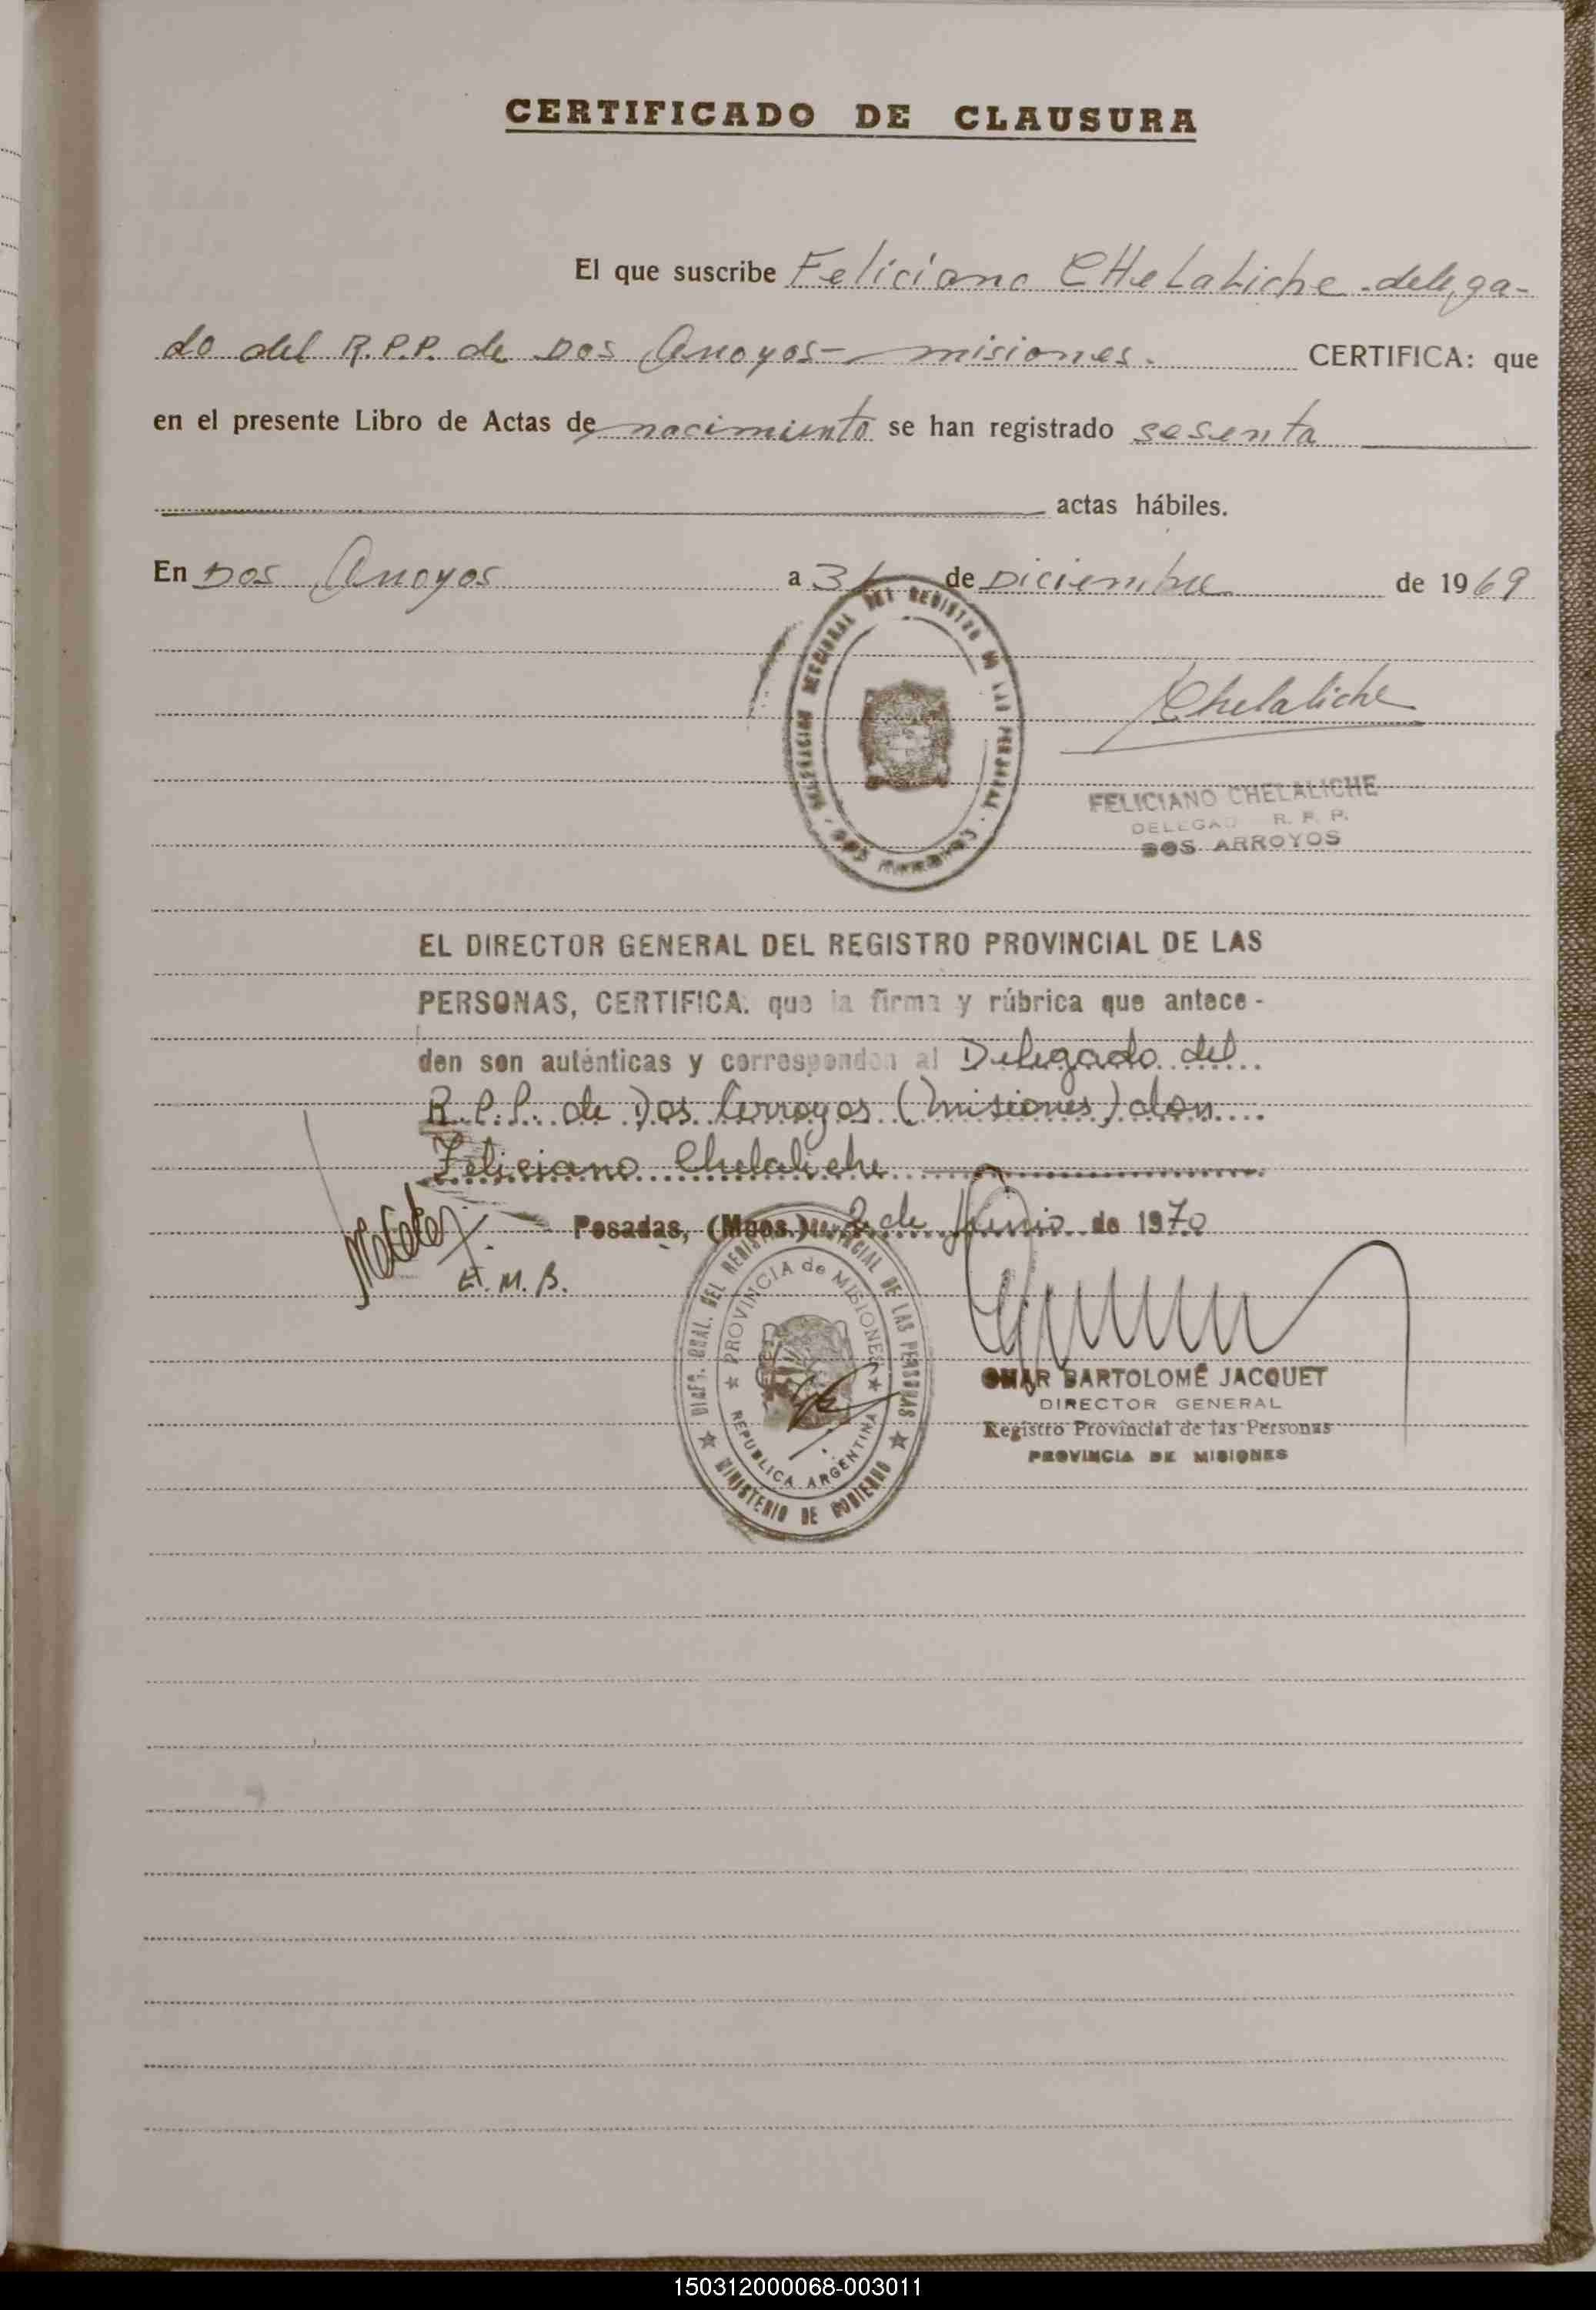 CERTIFICADO DE CLAUSURA
El que suscribe Feliciano CHelaliche delega-
do del R.P.P. de Dos Arroyos - misiones. CERTIFICA: que
en el presente Libro de Actas de nacimiento se han registrado sesenta
actas hábiles.
En Dos Arroyos a 31 de Diciembre de 1969
DEL REGISTRO DE LAS PERSONAS
Chelaliche
FELICIANO CHELALICHE
R. P. P.
DOS ARROYOS
EL DIRECTOR GENERAL DEL REGISTRO PROVINCIAL DE LAS
PERSONAS, CERTIFICA: que la firma y rúbrica que antece-
den son auténticas y corresponden al Delegado del
R.P.P. de Dos Arroyos (Misiones) don
Feliciano Chelaliche
Posadas, (Mnes.) 2 de Junio de 1970
E. M. B.
DIREC. GRAL. DEL REGISTRO PROVINCIAL DE LAS PERSONAS
MINISTERIO DE GOBIERNO
PROVINCIA de MISIONES
REPUBLICA ARGENTINA
OMAR BARTOLOMÉ JACQUET
DIRECTOR GENERAL
Registro Provincial de las Personas
PROVINCIA DE MISIONES
150312000068-003011